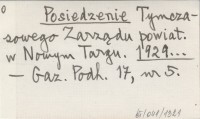 Posiedzenie Tymcza-
sowego Zarządu powiat.
w Nowym Targu. 1929...
– Gaz. Podh. 17, nr 5.